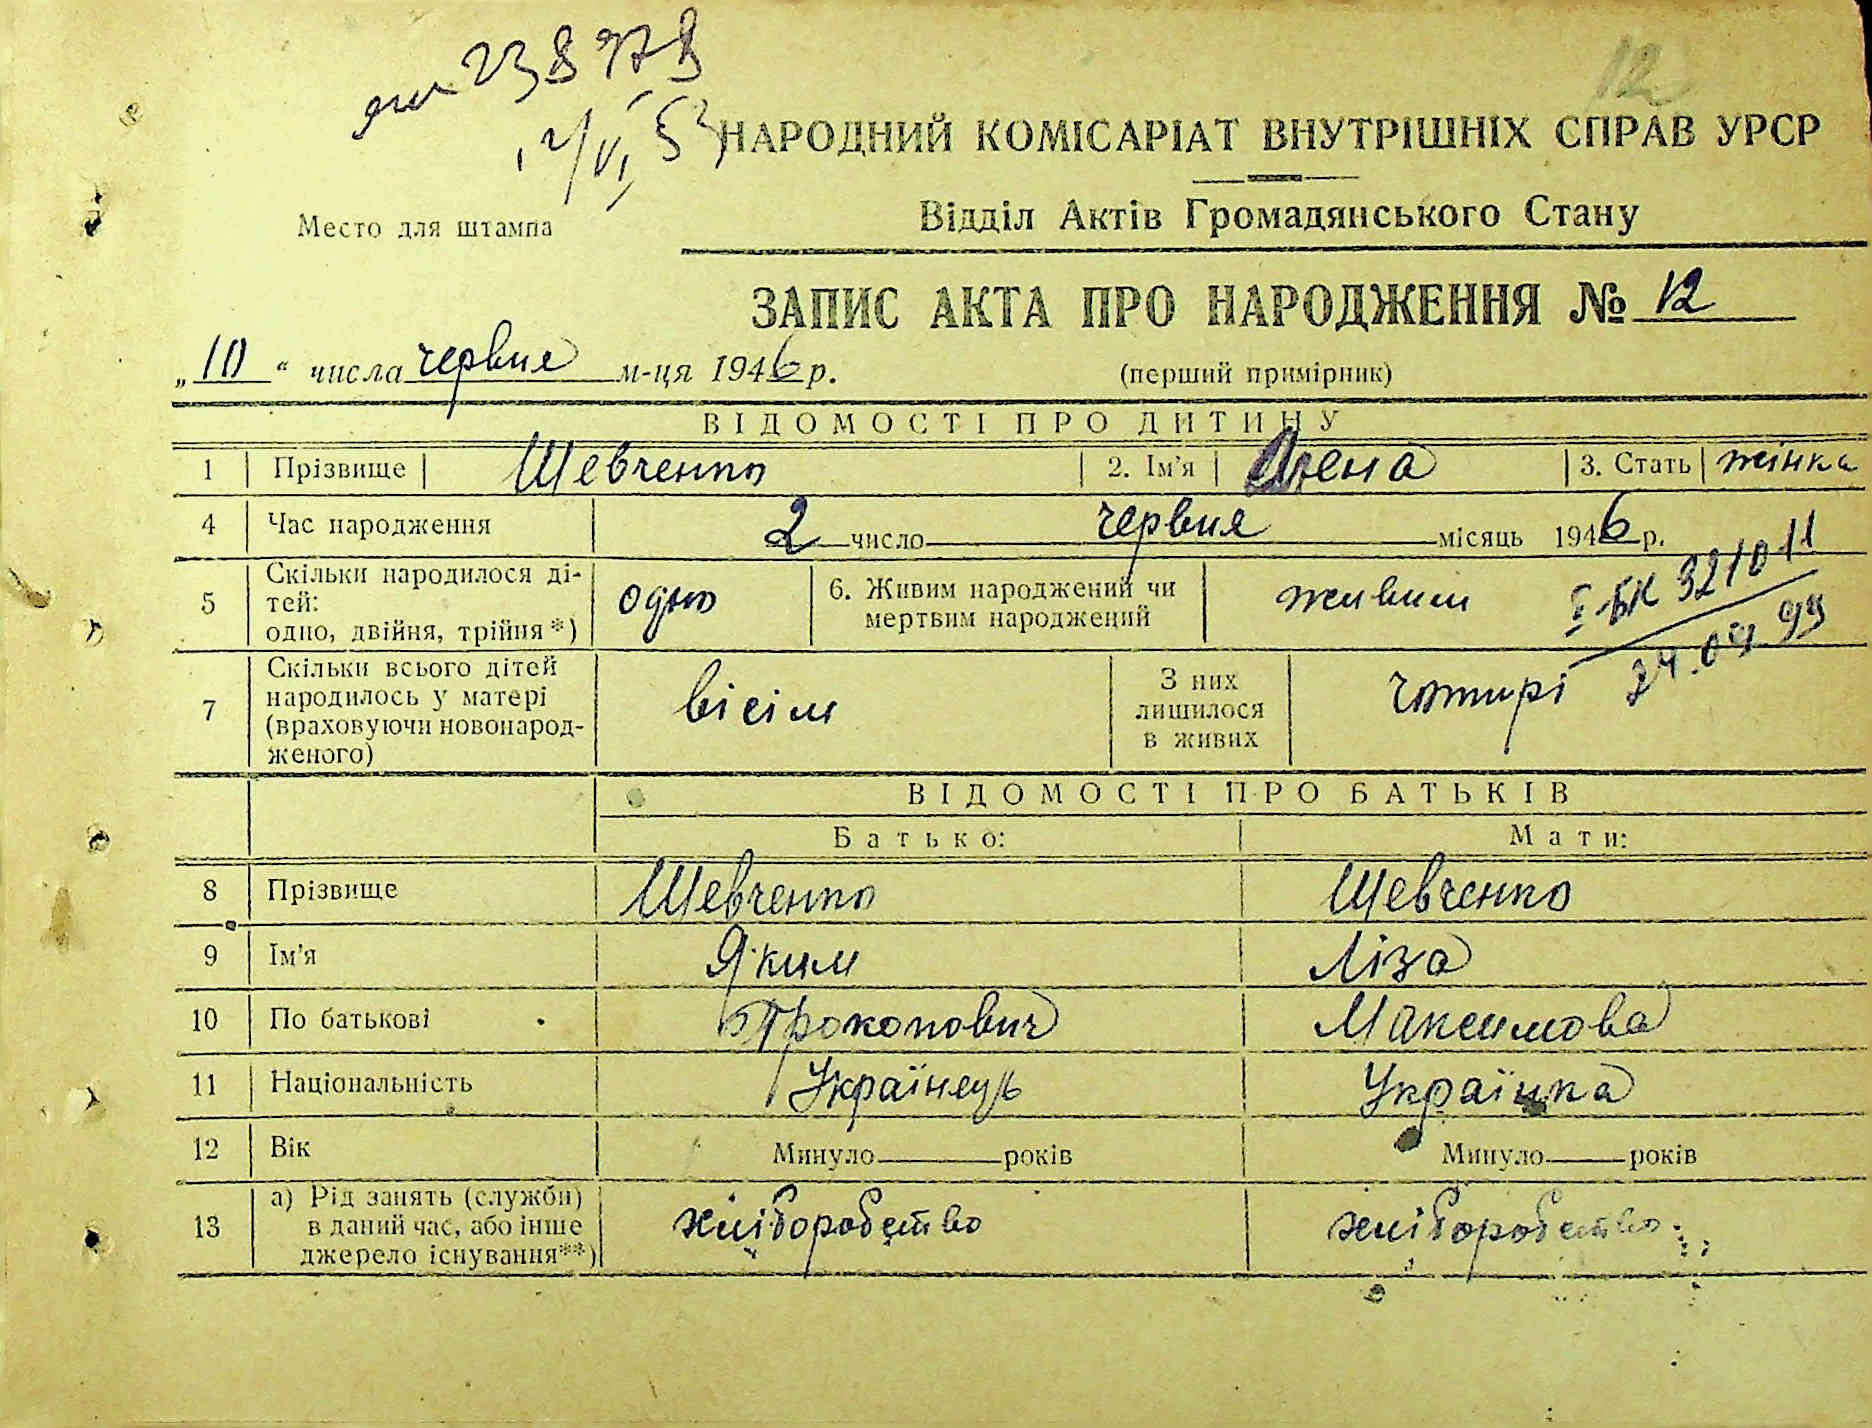 12
23878
НАРОДНИЙ КОМІСАРІАТ ВНУТРІШНІХ СПРАВ УРСР
Відділ Актів Громадянського Стану
Место для штампа
ЗАПИС АКТА ПРО НАРОДЖЕННЯ № 12
„10“ числа червня м-ця 1946 р. (перший примірник)
ВІДОМОСТІ ПРО ДИТИНУ
1 Прізвище Шевченко 2. Ім'я 3. Стать жінка
4 Час народження 2 число червня місяць 1946 р.
5 Скільки народилося ді-
тей:
одно, двійня, трійня*) одно 6. Живим народжений чи
мертвим народжений живим
І-БК 321011
24.04 99
7 Скільки всього дітей
народилось у матері
(враховуючи новонарод-
женого) вісім З них
лишилося
в живих чотирі
ВІДОМОСТІ ПРО БАТЬКІВ
Батько: Мати:
8 Прізвище Шевченко Шевченко
9 Ім'я Яким Ліза
10 По батькові Прокопович Максимова
11 Національність Українець Українка
12 Вік Минуло років Минуло років
13 а) Рід занять (служби)
в даний час, або інше
джерело існування**) хліборобство хліборобство